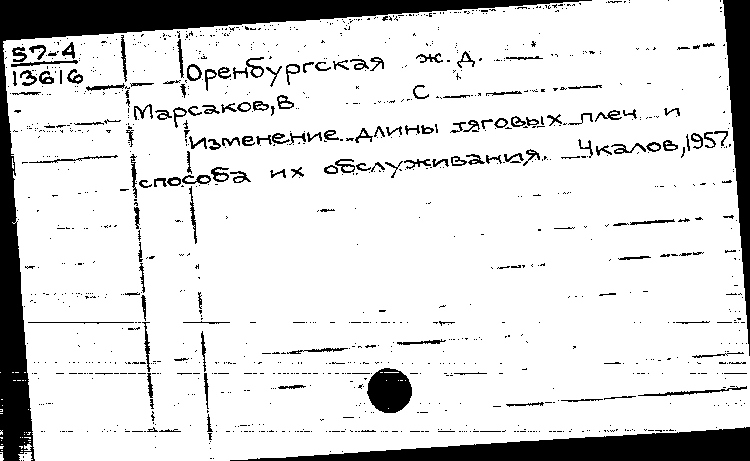 57-4
13616
Оренбургская ж. д.
Марсаков, В С
Изменение длины тяговых плеч и
способа их обслуживания. Чкалов, 1957.